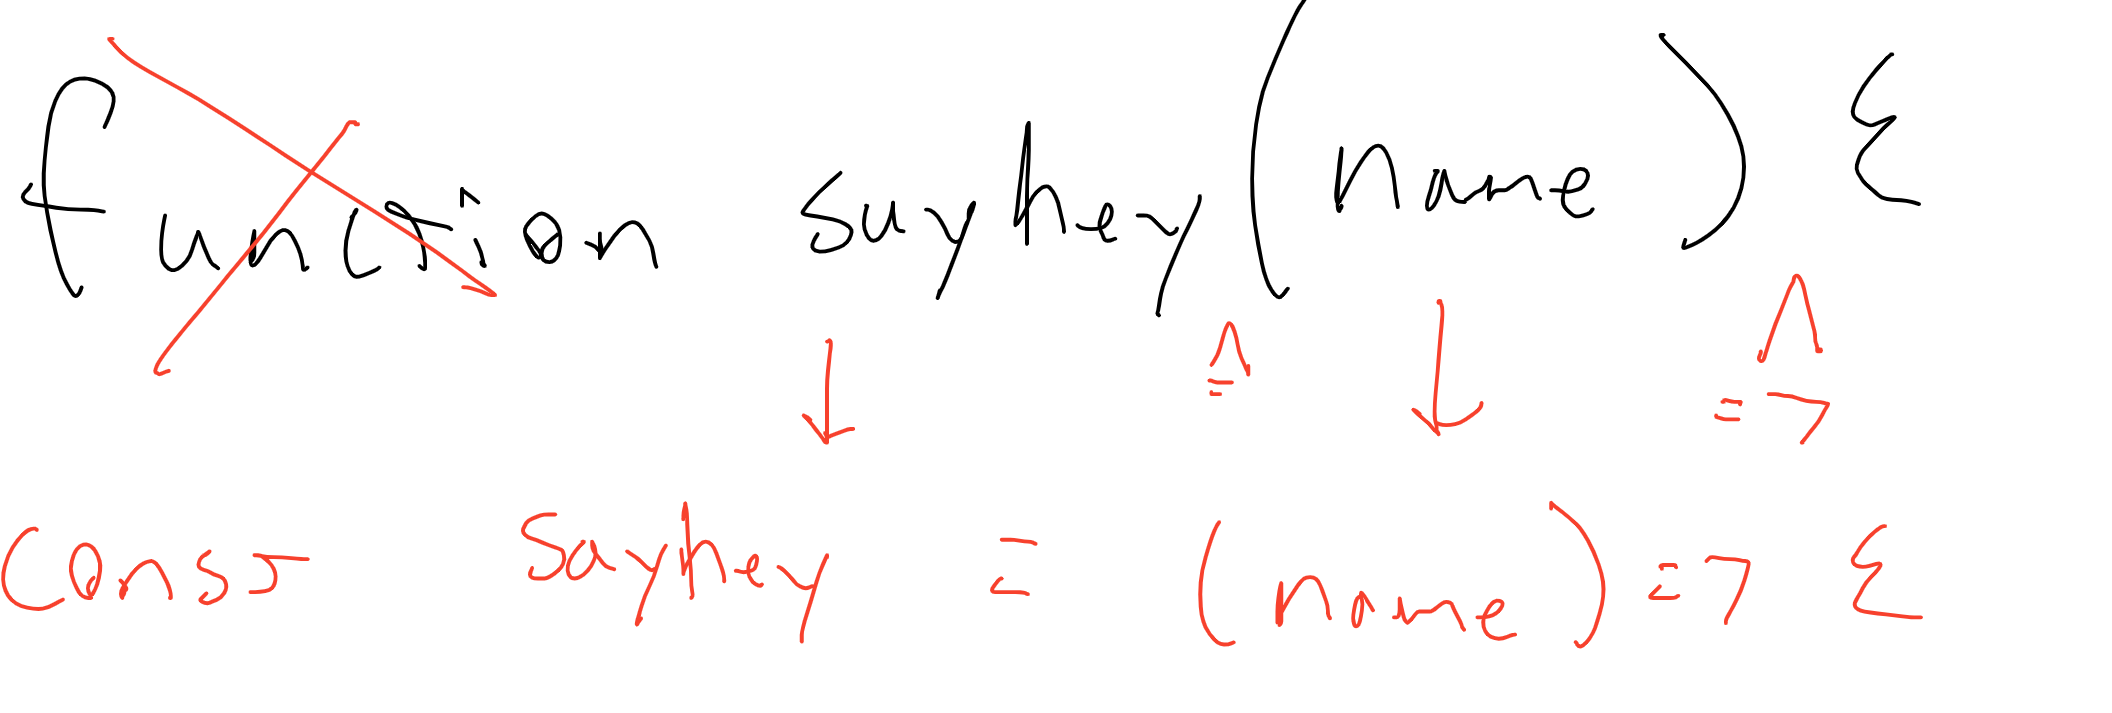 function sayhey(name) {
= =>
const sayhey = (name) => {